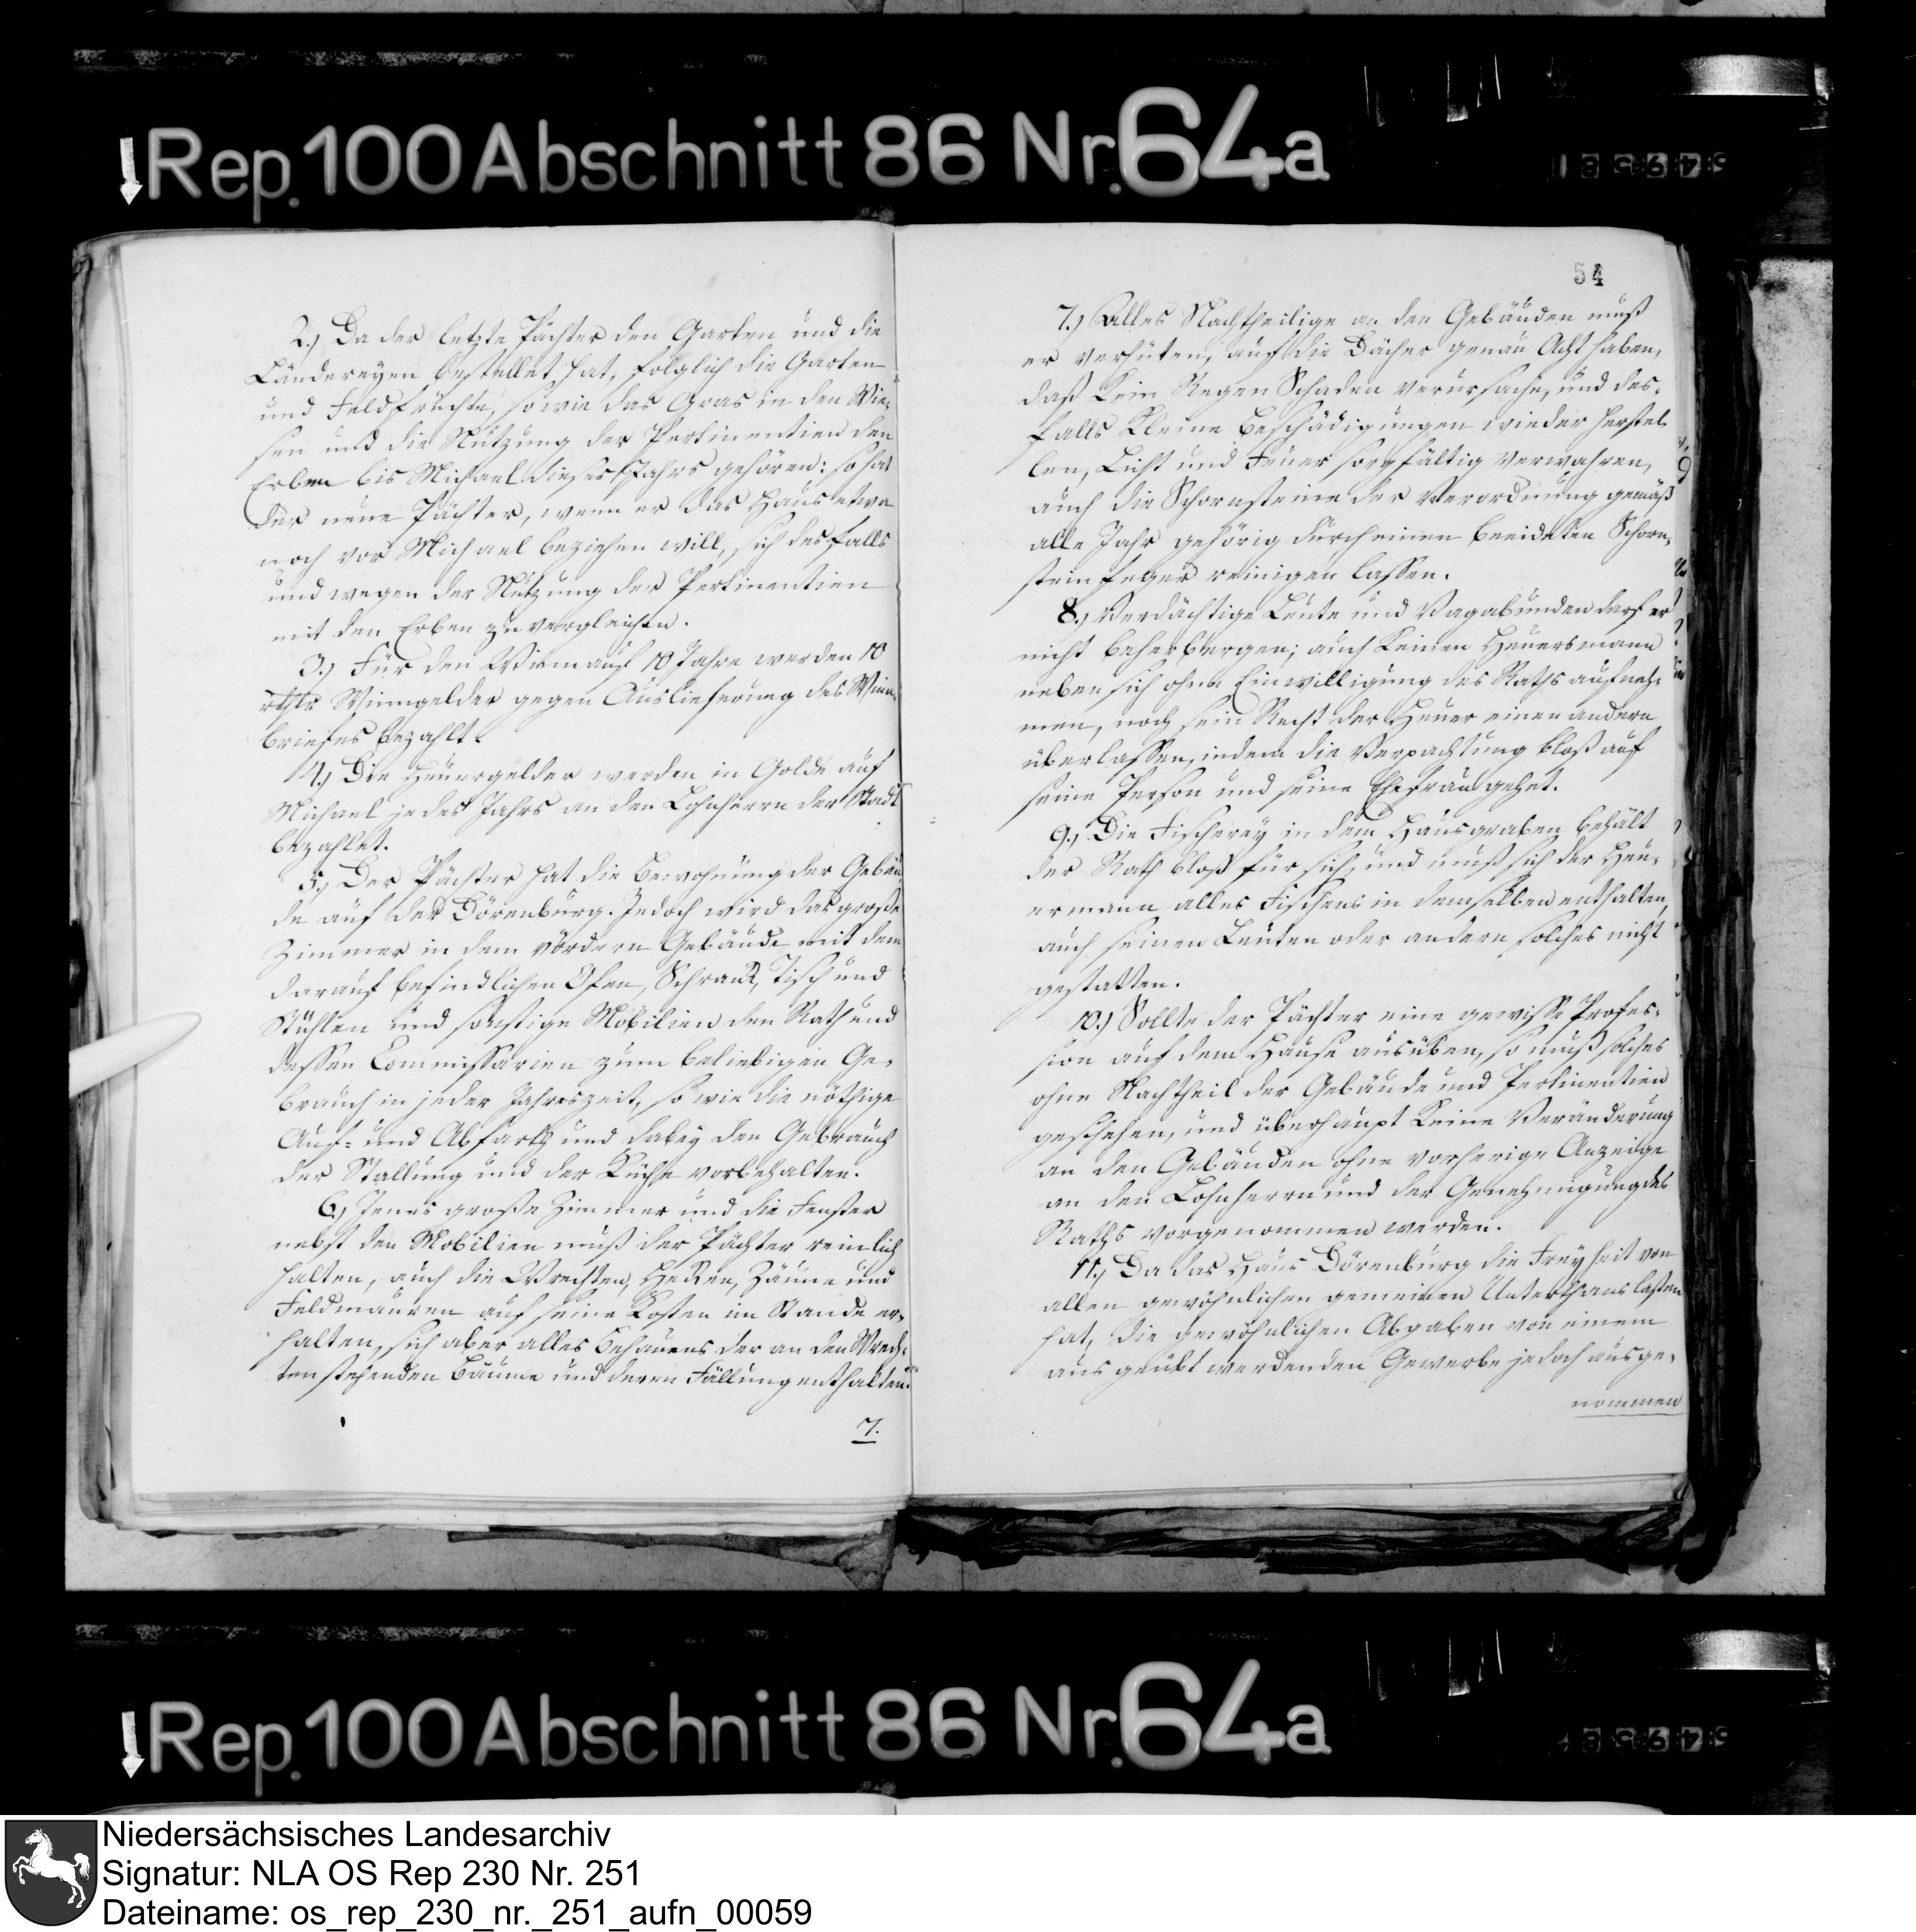 Rep. 100 Abschnitt 86 Nr. 64a
2.) Da der letzte Pächter den Garten und die
Ländereyen bestellet hat, folglich die Garten
und Feldfrüchte, so wie das Gras in den Wie-
sen und die Nutzung der Pertinentien den
Erben bis Michael dieses Jahrs gehören: so hat
der neue Pächter, wenn er das Haus etwa
noch vor Michael beziehen will, sich desfalls
und wegen der Nutzung der Pertinentien
mit den Erben zu vergleichen.
3.) Für den Winn auf 10 Jahre werden 10
rthlr Winngelder gegen Auslieferung des Winn-
briefes bezahlt.
4.) Die Heuergelder werden in Golde auf
Michael jedes Jahrs an den Lohnherrn der Stadt
bezahlet.
5.) Der Pächter hat die Bewohnung der Gebäu-
de auf der Dörenburg. Jedoch wird das große
Zimmer in dem vordern Gebäude mit dem
darauf befindlichen Ofen, Schrank, Tisch und
Stühlen und sonstige Mobilien dem Rath und
dessen Commissarien zum beliebigen Ge-
brauch in jeder Jahreszeit, so wie die nöthige
Auf- und Abfarth und dabey den Gebrauch
der Stallung und der Küche vorbehalten.
6.) Jenes große Zimmer und die Fenster
nebst den Mobilien muß der Pächter reinlich
halten, auch die Wrechten, Hecken, Zäune und
Feldmauren auf seine Kosten im Stande er-
halten, sich aber alles Behauens der an den Wrech-
ten stehenden Bäume und deren Fällung enthalten.
7.
54
7.) Alles Nachtheilige an den Gebäuden muß
er verhüten, auf die Dächer genau Acht haben,
daß kein Regen Schaden verursache, und des-
falls kleine Beschädigungen wieder herstel-
len, Licht und Feuer sorgfältig verwahren,
auch die Schornsteine der Verordnung gemäß
alle Jahr gehörig durch einen beeideten Schorn-
steinfeger reinigen lassen.
8.) Verdächtige Leute und Vagabunden darf er
nicht beherbergen; auch keinen Heuersmann
neben sich ohne Einwilligung des Raths aufneh-
men, noch sein Recht der Heuer einen andern
überlassen, indem die Verpachtung bloß auf
seine Person und seine Ehefrau gehet.
9.) Die Fischerey in dem Hausgraben behält
der Rath bloß für sich, und muß sich der Heu-
ermann alles Fischens in demselben enthalten,
auch seinen Leuten oder andern solches nicht
gestatten.
10.) Sollte der Pächter eine gewisse Profes-
sion auf dem Hause ausüben, so muß solches
ohne Nachtheil der Gebäude und Pertinentien
geschehen, und überhaupt keine Veränderung
an den Gebäuden ohne vorherige Anzeige
an den Lohnherrn und der Genehmigung des
Raths vorgenommen werden.
11.) Da das Haus Dörenburg die Freyheit von
allen gewöhnlichen gemeinen Unterthans lasten
hat, die gewöhnlichen Abgaben von einem
ausgeübt werdenden Gewerbe jedoch ausge-
nommen
Rep. 100 Abschnitt 86 Nr. 64a
Niedersächsisches Landesarchiv
Signatur: NLA OS Rep 230 Nr. 251
Dateiname: os_rep_230_nr._251_aufn_00059